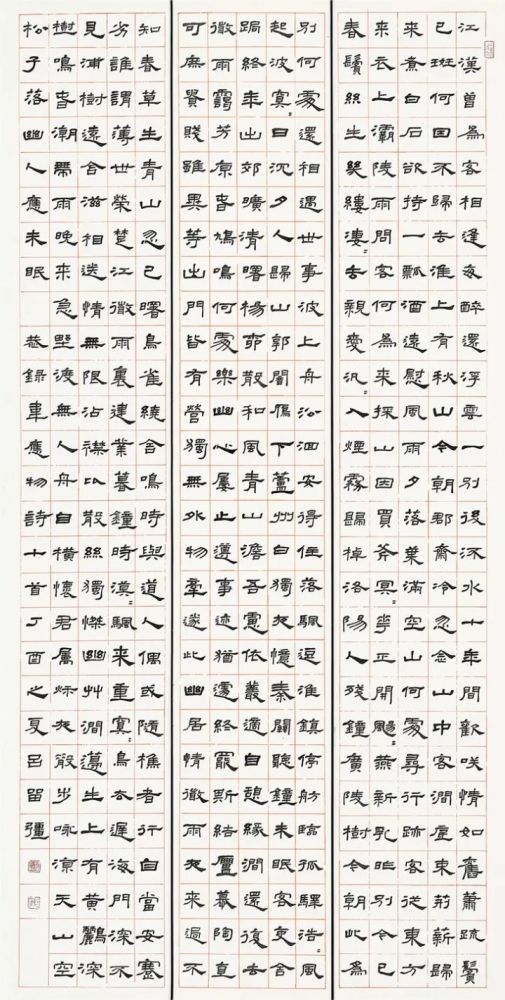 江漢曾為客相逢每醉還浮雲一別後流水十年間歡咲情如舊蕭疏鬢
已班何因不歸去淮上有秋山今朝郡齋冷忽念山中客澗底束荊薪歸
來煮白石欲持一瓢酒遠慰風雨夕落葉滿空山何處尋行跡客從東方
來衣上灞陵雨問客何為來採山因買斧冥〻華正開颺〻燕新乳昨別今已
春鬢絲生幾縷淒〻去親愛汎〻入煙霧歸棹洛陽人殘鐘廣陵樹今朝此為
別何處還相遇世事波上舟沿洄安得住落颿逗淮鎮停舫臨孤驛浩〻風
起波冥〻日沉夕人歸山郭闇雁下蘆洲白獨夜憶秦關聽鐘未眠客吏舍
跼終年出郊曠清曙楊柳散和風青山澹吾慮依叢適自憩緣澗還復去
微雨靄芳原春鳩鳴何處樂幽心屢止遵事跡猶遽終罷斯結廬慕陶直
可庶貴賤雖異等出門皆有營獨無外物牽遂此幽居情微雨夜來過不
知春草生青山忽已曙鳥雀繞舍鳴時與道人偶或隨樵者行自當安蹇
劣誰謂薄世榮楚江微雨裏建業暮鐘時漠〻颿來重冥〻鳥去遲海門深不
見浦樹遠含滋相送情無限沾襟比散絲獨憐幽艸澗邊生上有黃鸝深
樹鳴春潮帶雨晚來急野渡無人舟自橫懷君屬秋夜散步詠涼天山空
松子落幽人應未眠 恭錄韋應物詩十首丁酉之夏呂留疆